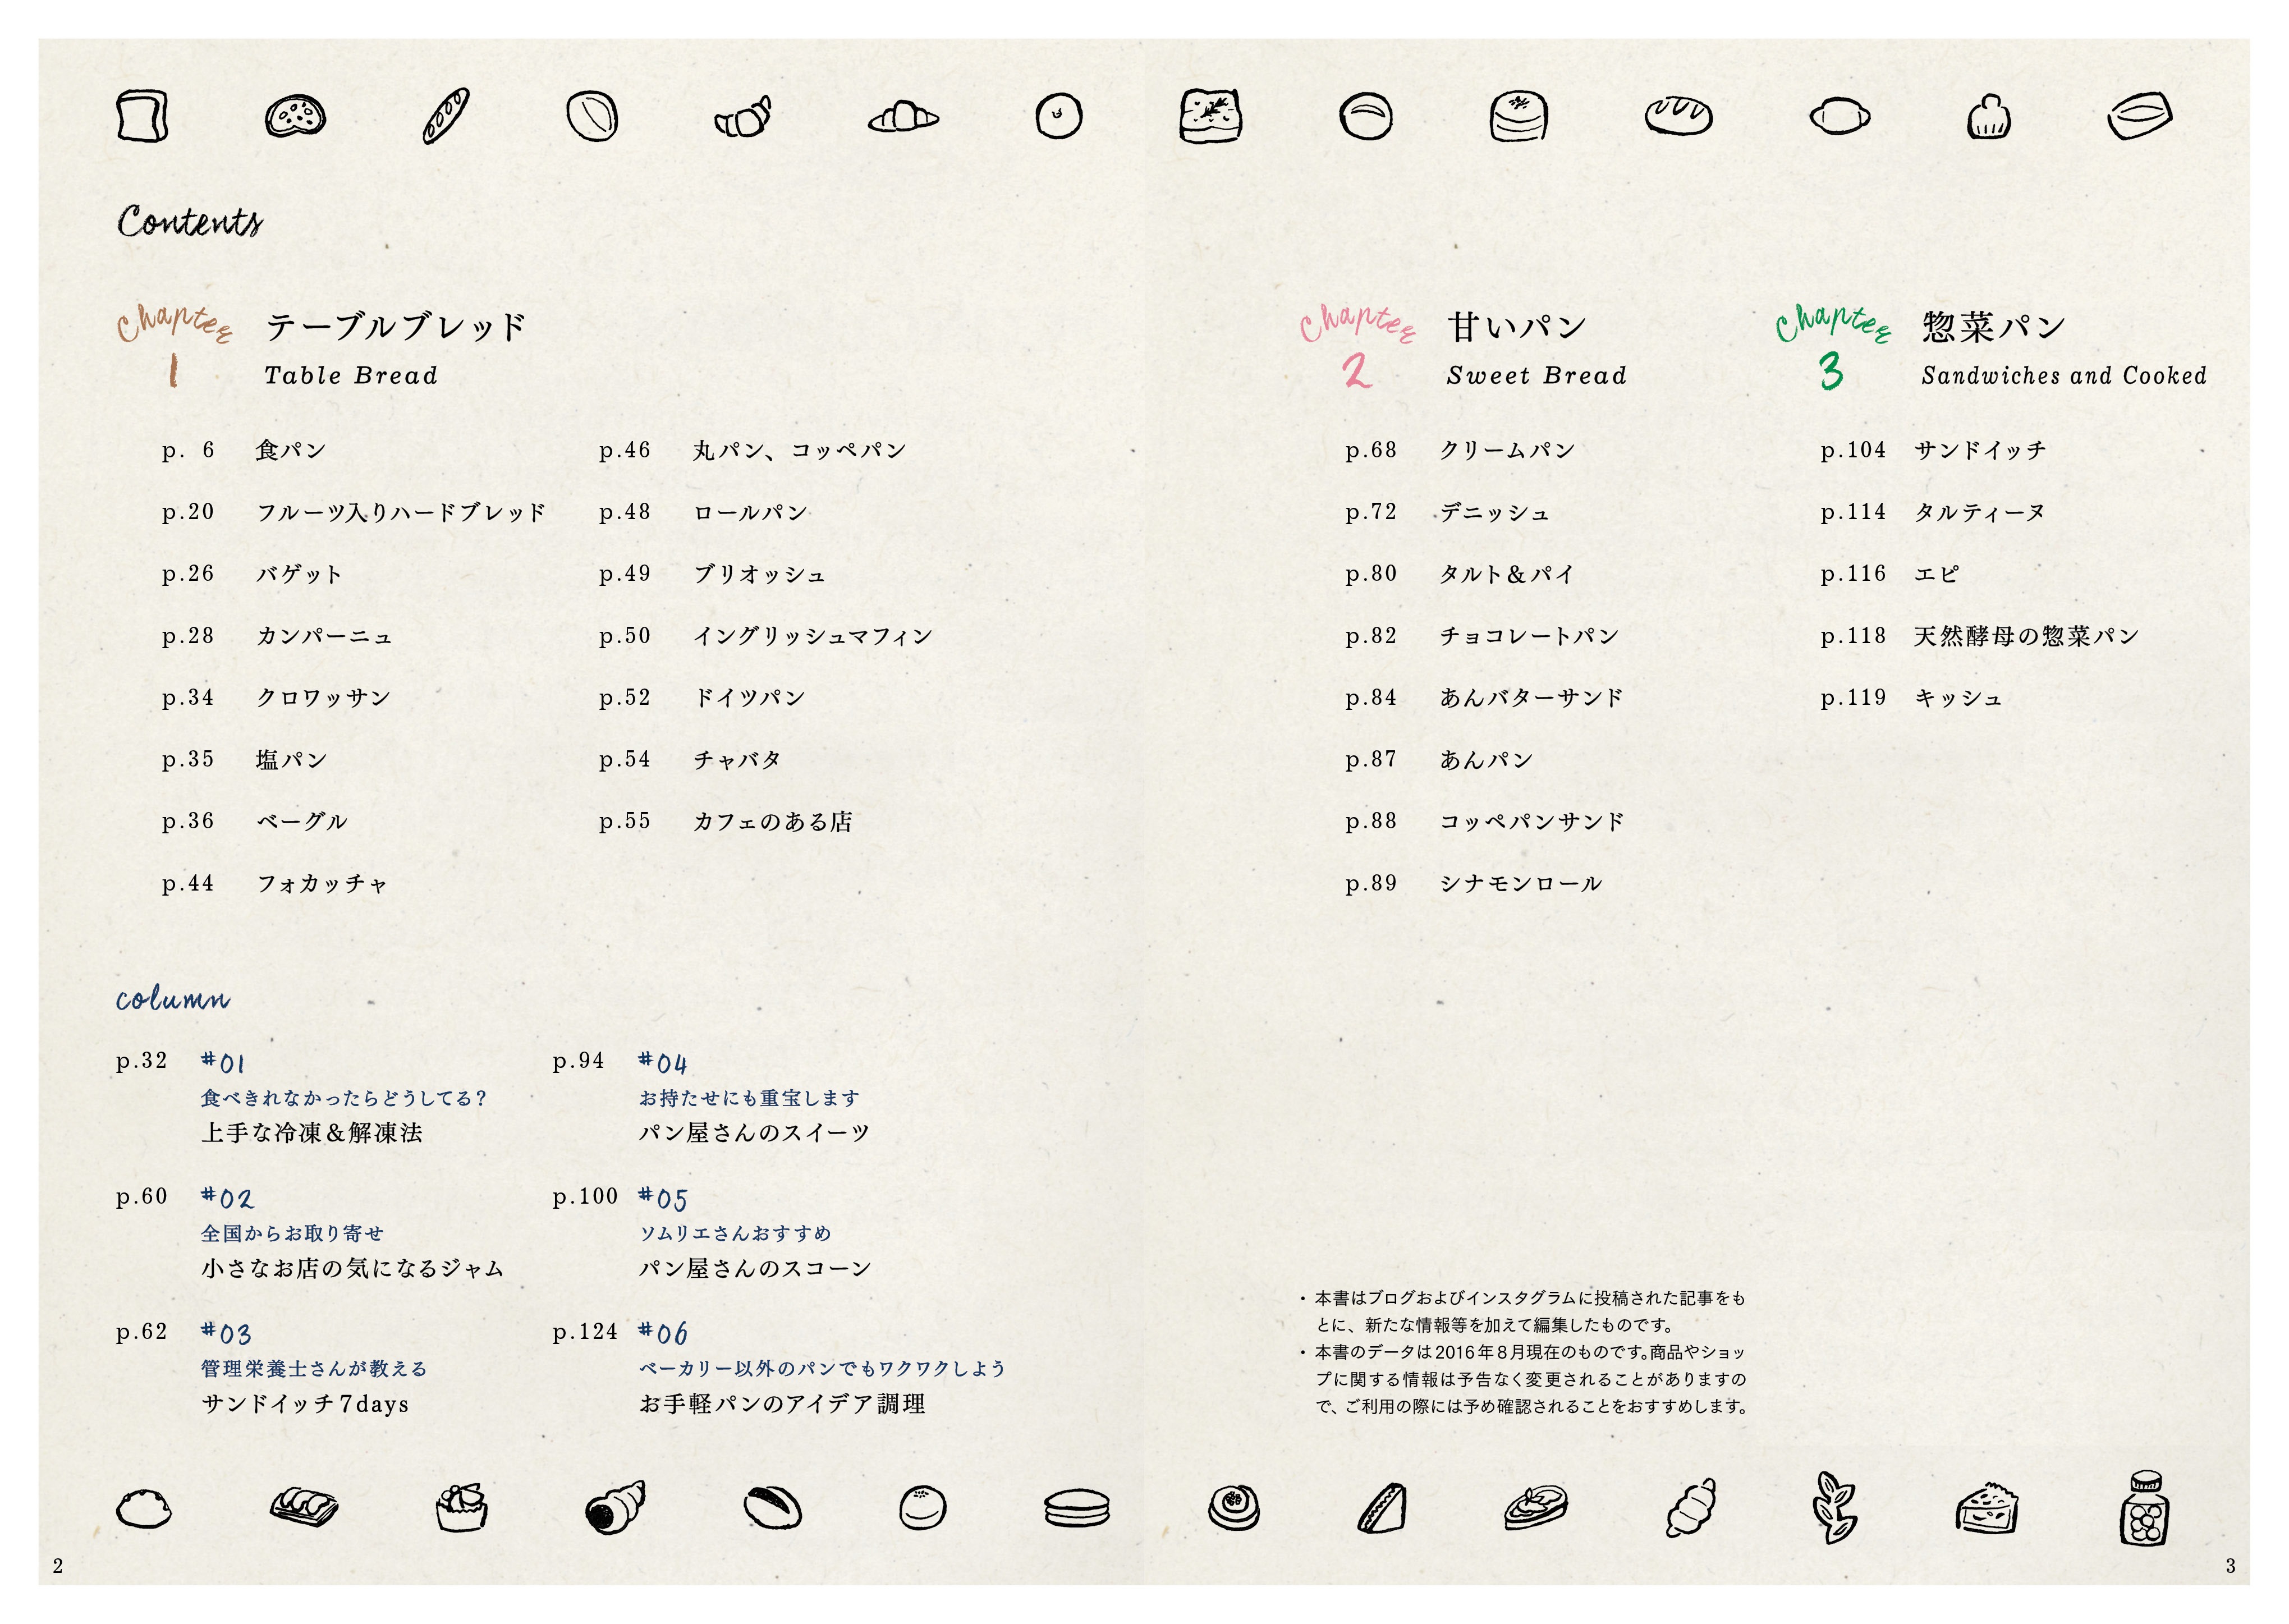 Contents
Chapter
1
テーブルブレッド
Table Bread
p. 6 食パン
p.20 フルーツ入りハードブレッド
p.26 バゲット
p.28 カンパーニュ
p.34 クロワッサン
p.35 塩パン
p.36 ベーグル
p.44 フォカッチャ
p.46 丸パン、コッペパン
p.48 ロールパン
p.49 ブリオッシュ
p.50 イングリッシュマフィン
p.52 ドイツパン
p.54 チャバタ
p.55 カフェのある店
column
p.32 #01
食べきれなかったらどうしてる？
上手な冷凍＆解凍法
p.60 #02
全国からお取り寄せ
小さなお店の気になるジャム
p.62 #03
管理栄養士さんが教える
サンドイッチ7days
p.94 #04
お持たせにも重宝します
パン屋さんのスイーツ
p.100 #05
ソムリエさんおすすめ
パン屋さんのスコーン
p.124 #06
ベーカリー以外のパンでもワクワクしよう
お手軽パンのアイデア調理
2
Chapter
2
甘いパン
Sweet Bread
p.68 クリームパン
p.72 デニッシュ
p.80 タルト＆パイ
p.82 チョコレートパン
p.84 あんバターサンド
p.87 あんパン
p.88 コッペパンサンド
p.89 シナモンロール
Chapter
3
惣菜パン
Sandwiches and Cooked
p.104 サンドイッチ
p.114 タルティーヌ
p.116 エピ
p.118 天然酵母の惣菜パン
p.119 キッシュ
・本書はブログおよびインスタグラムに投稿された記事をも
とに、新たな情報等を加えて編集したものです。
・本書のデータは2016年8月現在のものです。商品やショッ
プに関する情報は予告なく変更されることがありますの
で、ご利用の際には予め確認されることをおすすめします。
3